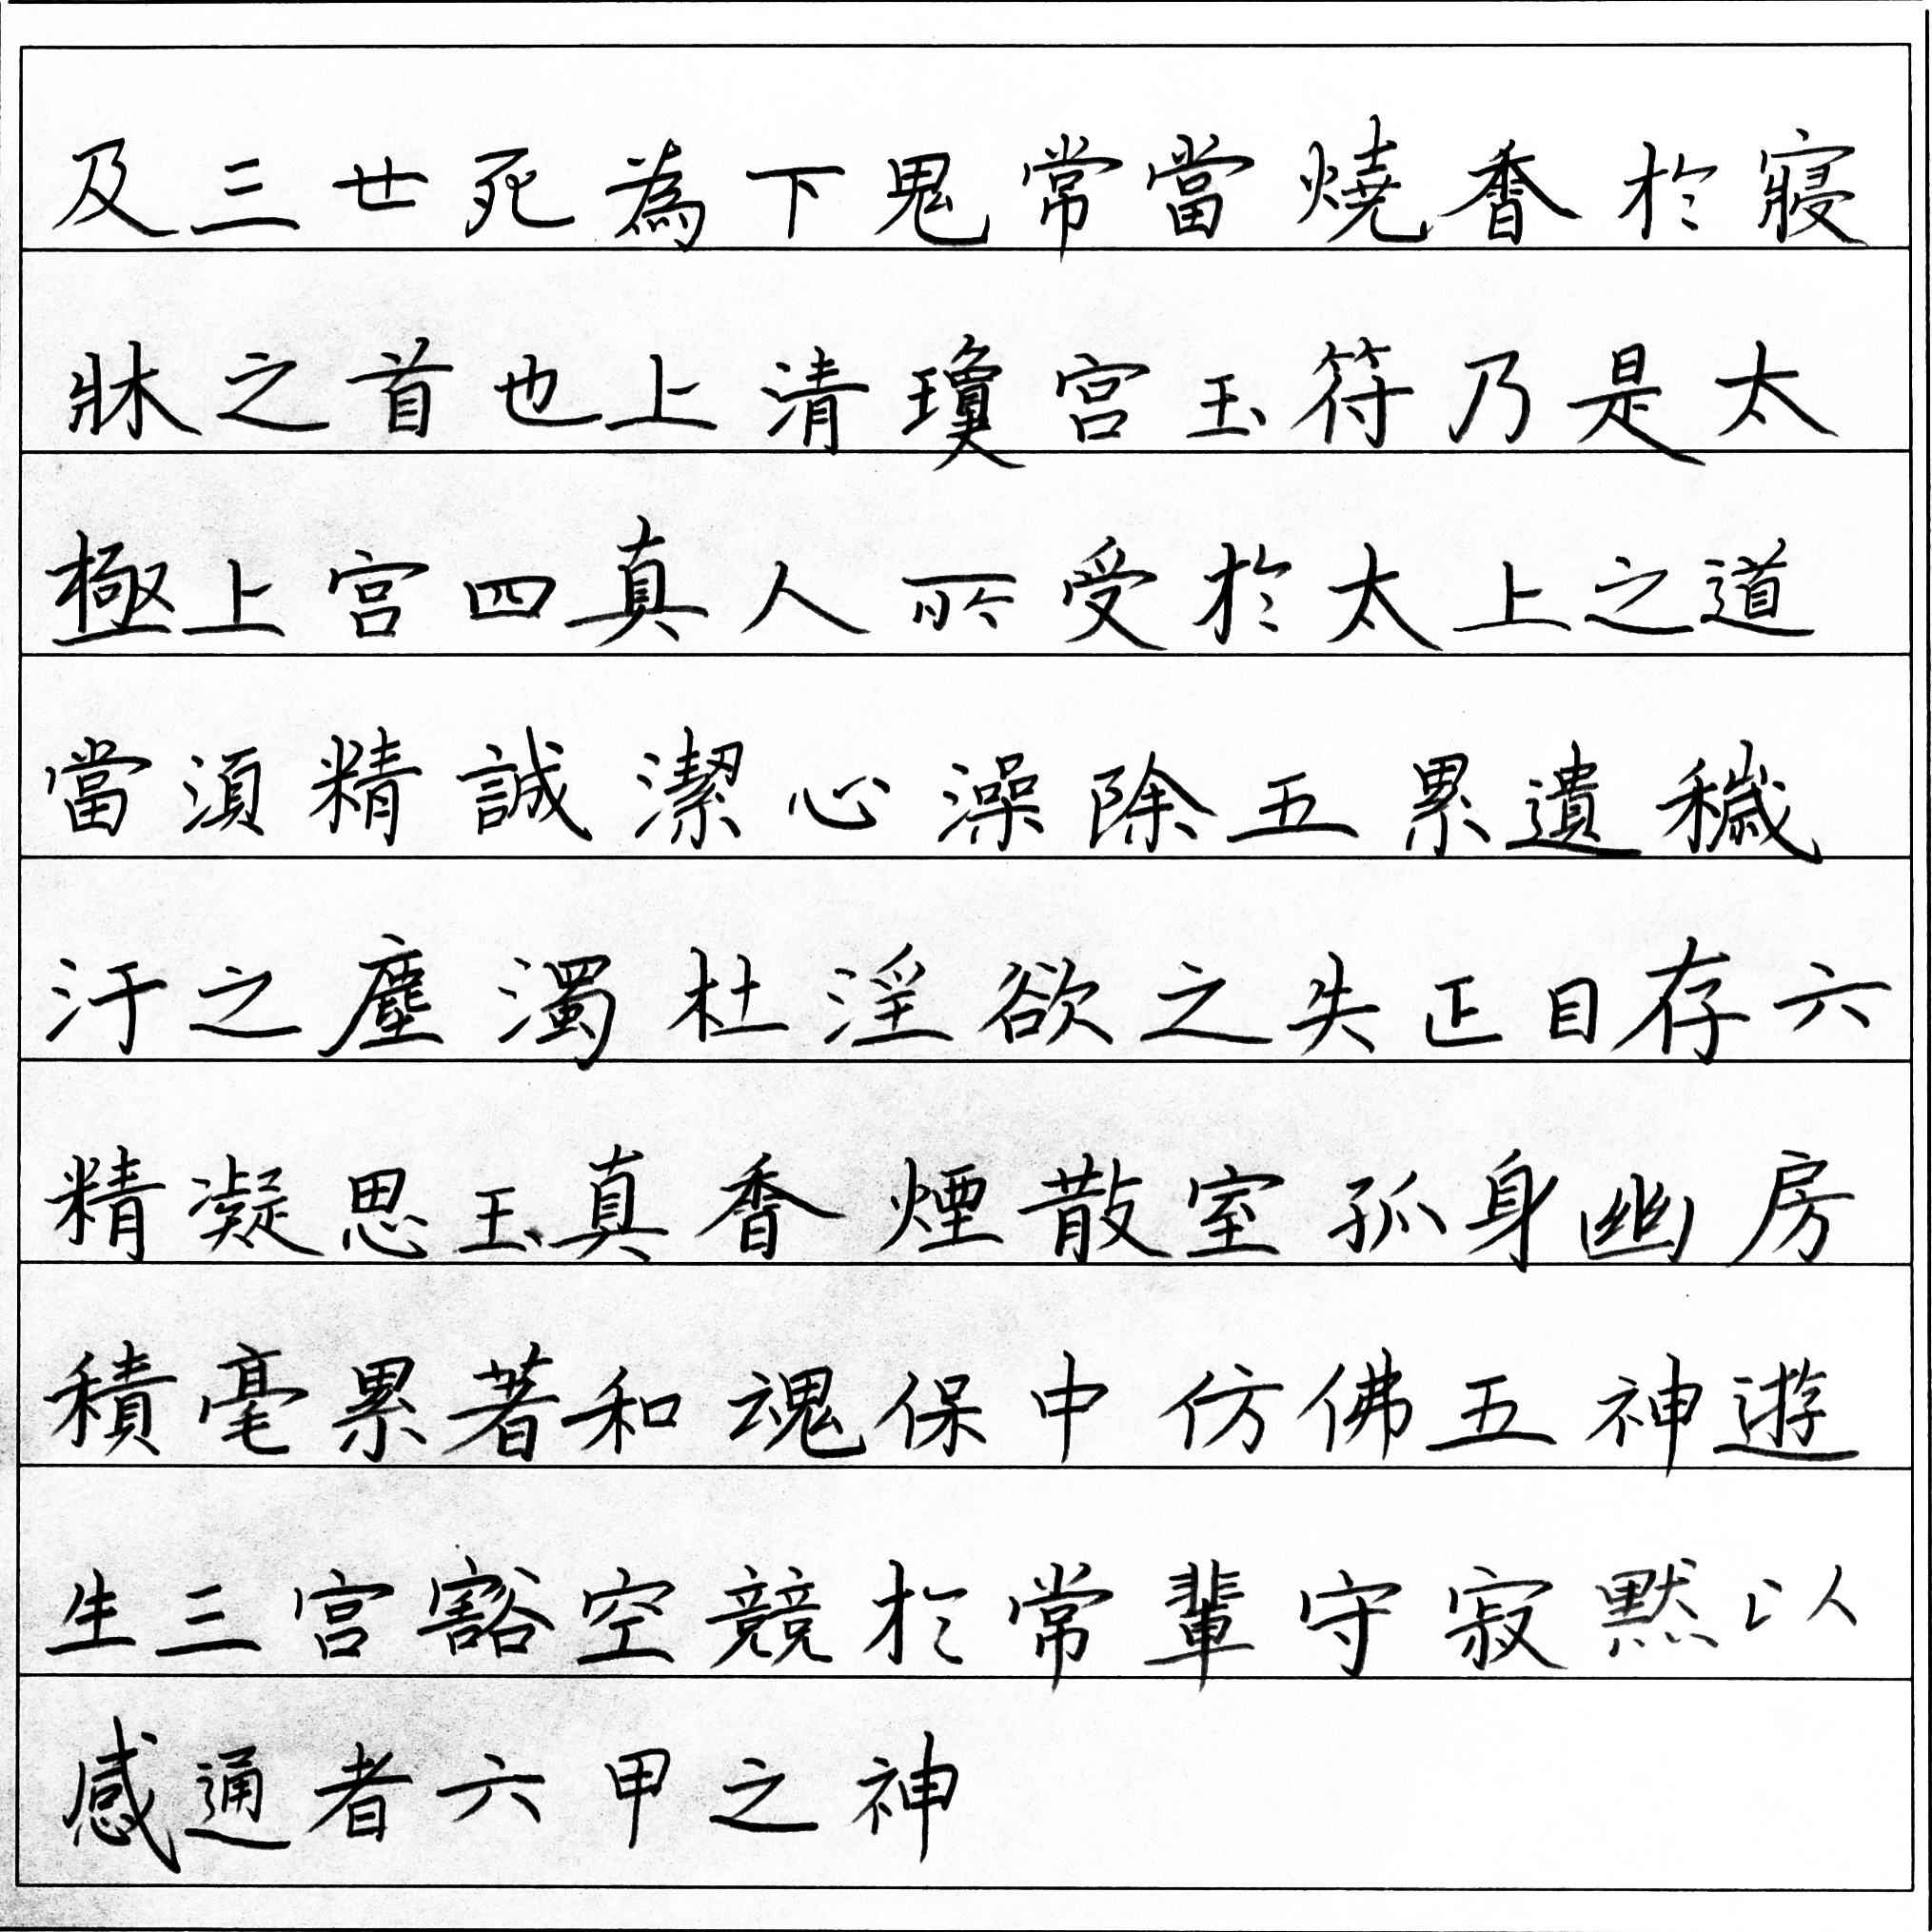 及三世死為下鬼常當燒香於寢
牀之首也上清瓊宮玉符乃是太
極上宮四真人所受於太上之道
當須精誠潔心澡除五累遺穢
汙之塵濁杜淫欲之失正目存六
精凝思玉真香煙散室孤身幽房
積毫累著和魂保中仿佛五神遊
生三宮豁空競於常輩守寂默以
感通者六甲之神